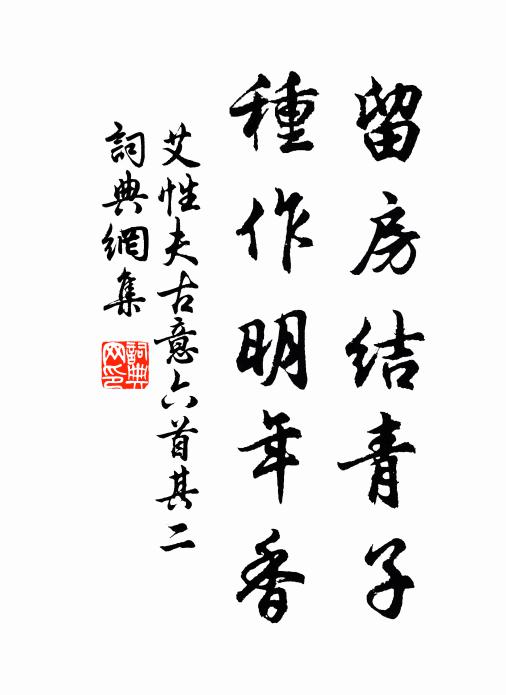 留房结青子
種作明年香
艾性夫古意六首其二
詞典網集
詞典網印